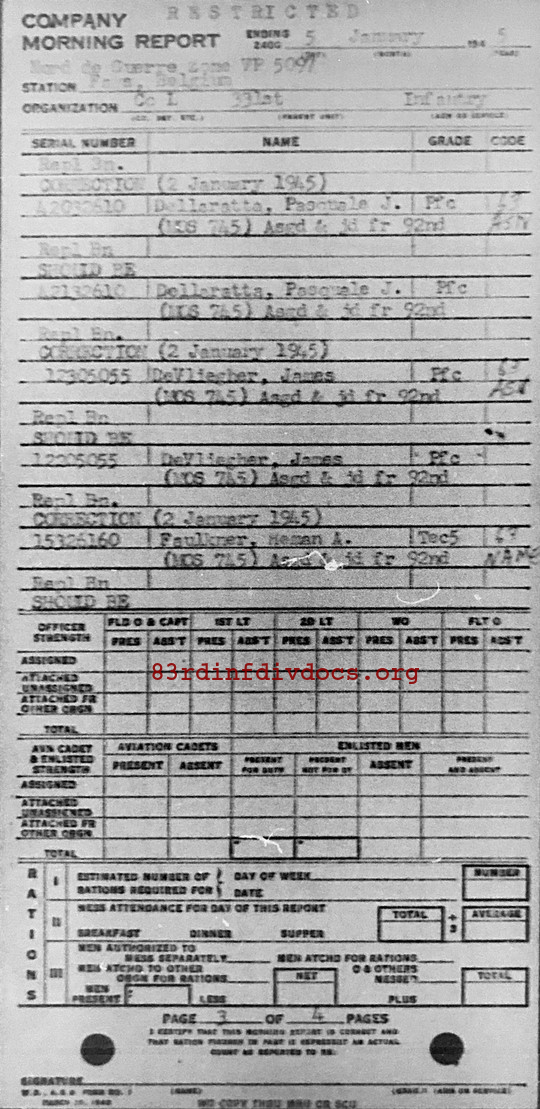 RESTRICTED
COMPANY
MORNING REPORT
ENDING 2400 5 January 194 5
Nord de Guerre Zone VP 5097
STATION Belgium
ORGANIZATION Co L 331st Infantry
SERIAL NUMBER NAME GRADE CODE
Repl Bn.
CORRECTION (2 January 1945)
42032610 Dellaratta, Pasquale J. Pfc
(MOS 745) Asgd & jd fr 92nd ASN
Repl Bn
SHOULD BE
42132610 Dellaratta, Pasquale J. Pfc
(MOS 745) Asgd & jd fr 92nd
Repl Bn.
CORRECTION (2 January 1945)
12305055 DeVliegher, James Pfc
(MOS 745) Asgd & jd fr 92nd ASN
Repl Bn
SHOULD BE
12205055 DeVliegher, James Pfc
(MOS 745) Asgd & jd fr 92nd
Repl Bn.
CORRECTION (2 January 1945)
15326160 Faulkner, Heman A. Tec5
(MOS 745) Asgd & jd fr 92nd NAME
Repl Bn
SHOULD BE
OFFICER STRENGTH FLD O & CAPT 1ST LT 2D LT WO FLT O
PRES ABS'T PRES ABS'T PRES ABS'T PRES ABS'T PRES ABS'T
ASSIGNED
83rdinfdivdocs.org
ATTACHED UNASSIGNED
ATTACHED FR OTHER ORGN
TOTAL
AVN CADET & ENLISTED STRENGTH AVIATION CADETS ENLISTED MEN
PRESENT ABSENT PRESENT FOR DUTY PRESENT NOT FOR DY ABSENT PRESENT AND ABSENT
ASSIGNED
ATTACHED UNASSIGNED
ATTACHED FR OTHER ORGN
TOTAL
RATIONS
I ESTIMATED NUMBER OF RATIONS REQUIRED FOR DAY OF WEEK DATE NUMBER
II MESS ATTENDANCE FOR DAY OF THIS REPORT TOTAL ÷ 3 AVERAGE
BREAKFAST DINNER SUPPER
III MEN AUTHORIZED TO MESS SEPARATELY MEN ATCHD FOR RATIONS
MEN ATCHD TO OTHER ORGN FOR RATIONS NET O & OTHERS MESSED TOTAL
MEN PRESENT LESS PLUS
PAGE 3 OF 4 PAGES
I CERTIFY THAT THIS MORNING REPORT IS CORRECT AND
THAT RATION FIGURES IN PART III REPRESENT AN ACTUAL
COUNT AS REPORTED TO ME.
SIGNATURE
W.D., A.G.O. FORM NO. 1 (NAME) (GRADE) (ARM OR SERVICE)
MARCH 1943
NO COPY THRU MRU OR SCU